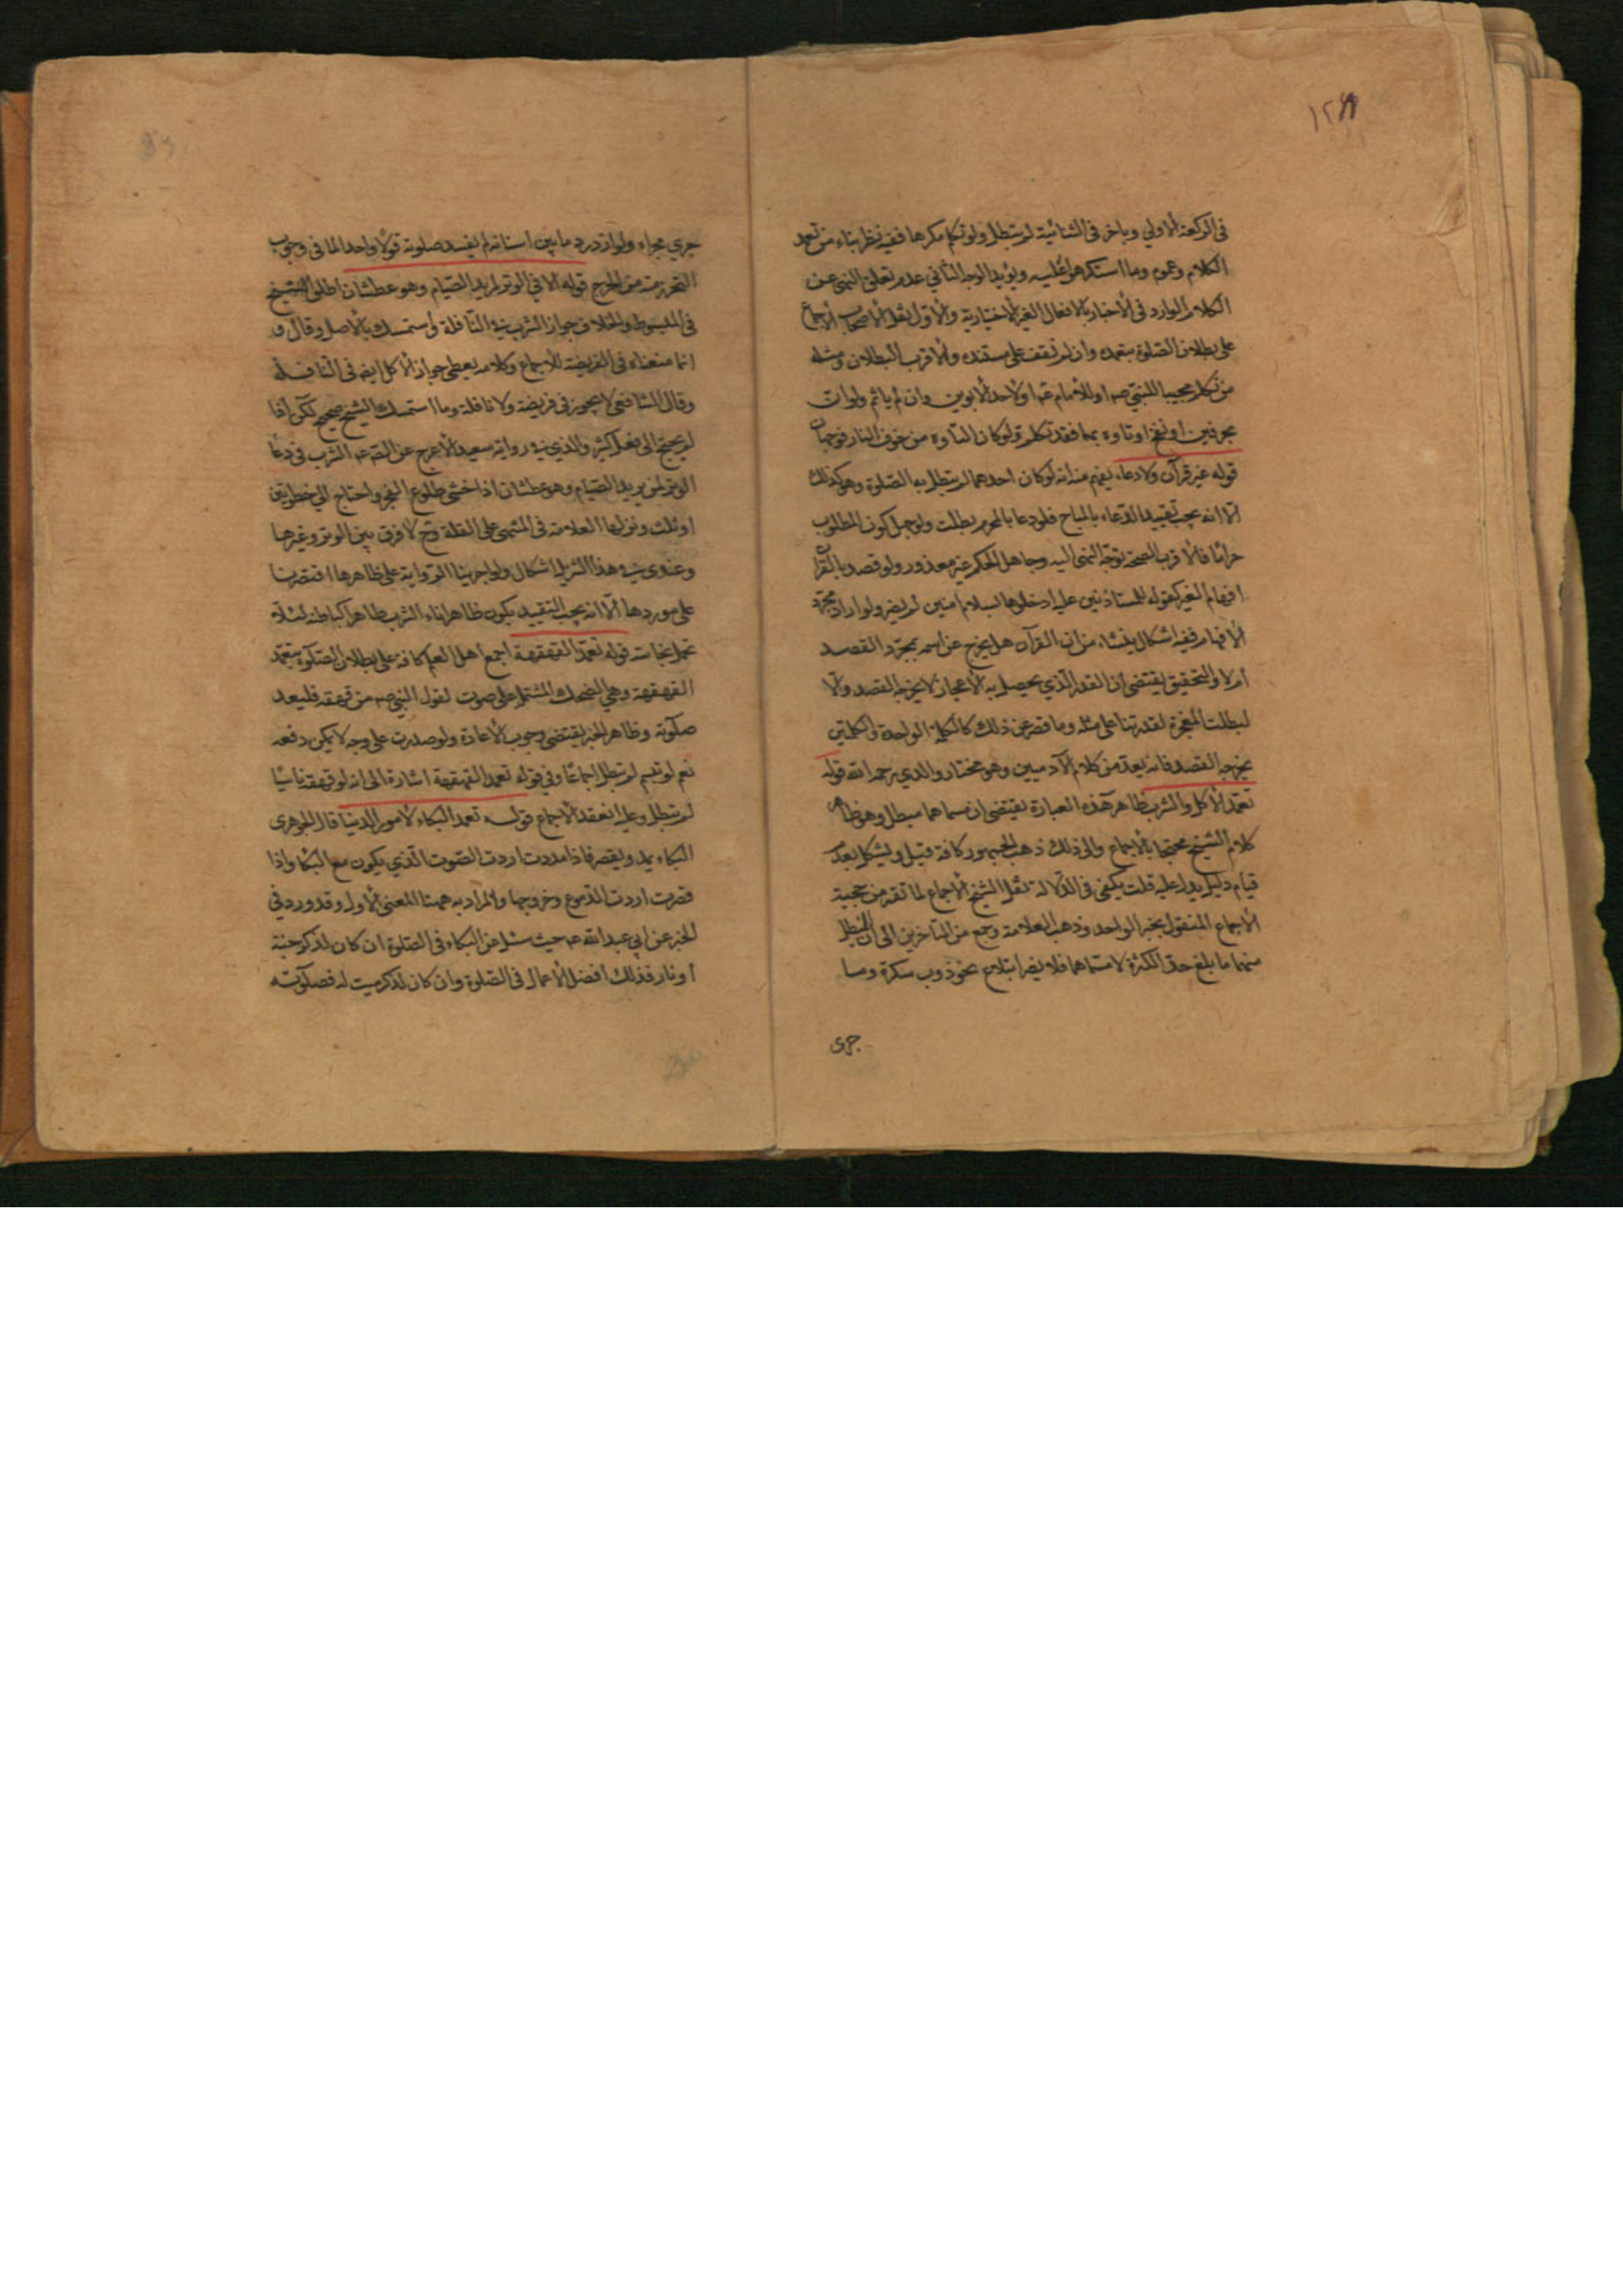 ١٢٨
فى الركعة الاولي وباخر فى الثانية لم يبطل ولو تكلم مكرها ففيه نظر بناء من تعمد
الكلام وعموم وما استكرهوا عليه ويؤيد الوجه الثاني عدم تعلق النهى عن
الكلام الوارد فى الاخبار بالافعال الغير الاختيارية والاول نقل الاصحاب الاجماع
على بطلان الصلوة بتعمده وان لم نقف على مستنده والاقرب البطلان ومثله
من تكلم مجيبا للنبى صه او للأمام عه او لاحد الابوين وان لم ياثم ولو ان
بحرفين او نفخ او تاوه بهما فقد تكلم ولو كان التاوه من خوف النار فوجهان
قوله غير قرآن ولا دعاء يفهم منه انه لو كان احدهما لم يبطل به الصلوة وهو كذلك
الا انه يجب تقييد الدعاء بالمباح فلو دعا بالمحرم بطلت ولو جهل كون المطلوب
حراما فالاقرب الصحة توجه النهى اليه وجاهل الحكم غير معذور ولو قصد بالقرآن
افهام الغير كقوله للمستاذنين عليه ادخلوها بسلام امنين لم يضر ولو اراد مجرد
الافهام ففيه اشكال ينشاء من ان القرآن هل يخرج عن اسمه بمجرد القصد
ام لا والتحقيق يقتضى ان القدر الذي يحصل به الاعجاز لا يخرجه القصد والا
لبطلت المعجزة لقدرتنا على مثله وما قصر عن ذلك كالكلمة الواحدة والكلمتين
يخرجه القصد فانه يعد من كلام الآدميين وهو مختار والدي رحمه الله قوله
تعمد الاكل والشرب ظاهر هذه العبارة يقتضى ان مسماهما مبطل وهو ظاهر
كلام الشيخ محتجا بالاجماع والى ذلك ذهب الجمهور كافة قيل ويشكل بعدم
قيام دليل يدل عليه قلت يكفى فى الدلالة نقل الشيخ الاجماع لما تقدم من حجية
الاجماع المنقول بخبر الواحد وذهب العلامة وجمع من المتأخرين الى ان المبطل
منهما ما بلغ حد الكثرة لا مسماهما فلا يضر ابتلاع نحو ذوب سكرة وما
جرى
جري مجراه ولو ازدرد ما بين اسنانه لم يفسد صلوته قولا واحدا لما فى وجوب
التحرز منه من الحرج قوله الا في الوتر لمريد الصيام وهو عطشان اطلق الشيخ
فى المبسوط والخلاف جواز الشرب في النافلة واستمسك بالاصل وقال
انما منعناه فى الفريضة للاجماع وكلامه يعطى جواز الاكل ايضا فى النافلة
وقال الشافعى لا يجوز فى فريضة ولا نافلة وما استمسك الشيخ صحيح لكن اذا
لم يحتج الى فعل كثير والذي في رواية سعيد الأعرج عن الصه عه الشرب فى دعاء
الوتر لمن يريد الصيام وهو عطشان اذا خشى طلوع الفجر واحتاج الى خطوتين
او ثلث ونزلها العلامة فى المنتهى على القلة وح لا فرق بين الوتر وغيرها
وعندى في هذا التنزيل اشكال ولو اجرينا الرواية على ظاهرها اقتصرنا
على موردها الا انه يجب التقييد بكون ظاهر اناء الشرب طاهرا كباطنه لئلا
يحمل نجاسة قوله تعمد القهقهة اجمع اهل العلم كافة على بطلان الصلوة بتعمد
القهقهة وهي الضحك المشتمل على صوت لقول النبى صه من قهقه فليعد
صلوته وظاهر الخبر يقتضى وجوب الأعادة ولو صدرت على وجه لا يمكن دفعه
نعم لو تبسم لم تبطل اجماعا وفي قوله تعمد القهقهة اشارة الى انه لو قهقه ناسيا
لم تبطل وعليه انعقد الاجماع قوله تعمد البكاء لأمور الدنيا قال الجوهرى
البكاء يمد ويقصر فاذا مددت اردت الصوت الذي يكون مع البكا واذا
قصرت اردت الدموع وخروجها والمراد به ههنا المعنى الاول وقد ورد في
الخبر عن ابي عبد الله عه حيث سئل عن البكاء فى الصلوة ان كان لذكر جنة
او نار فذلك افضل الأعمال فى الصلوة وان كان لذكر ميت له فصلوته